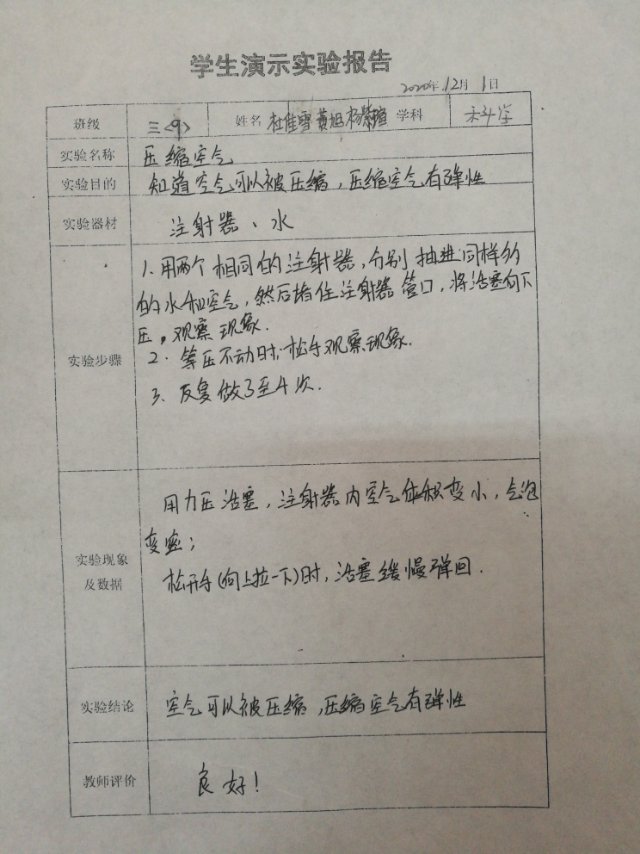 学生演示实验报告
2020年12月1日
班级 三<9> 姓名 杜佳雪 黄旭 杨紫瑄 学科 科学
实验名称 压缩空气
实验目的 知道空气可以被压缩，压缩空气有弹性
实验器材 注射器、水
1.用两个相同的注射器，分别抽进同样多
的水和空气，然后堵住注射器管口，将活塞向下
压，观察现象.
实验步骤 2. 等压不动时，松手观察现象.
3. 反复做3至4次.
用力压活塞，注射器内空气体积变小，气泡
变密；
实验现象
及数据
松开手(向上拉一下)时，活塞缓慢弹回.
实验结论 空气可以被压缩，压缩空气有弹性
教师评价 良好！